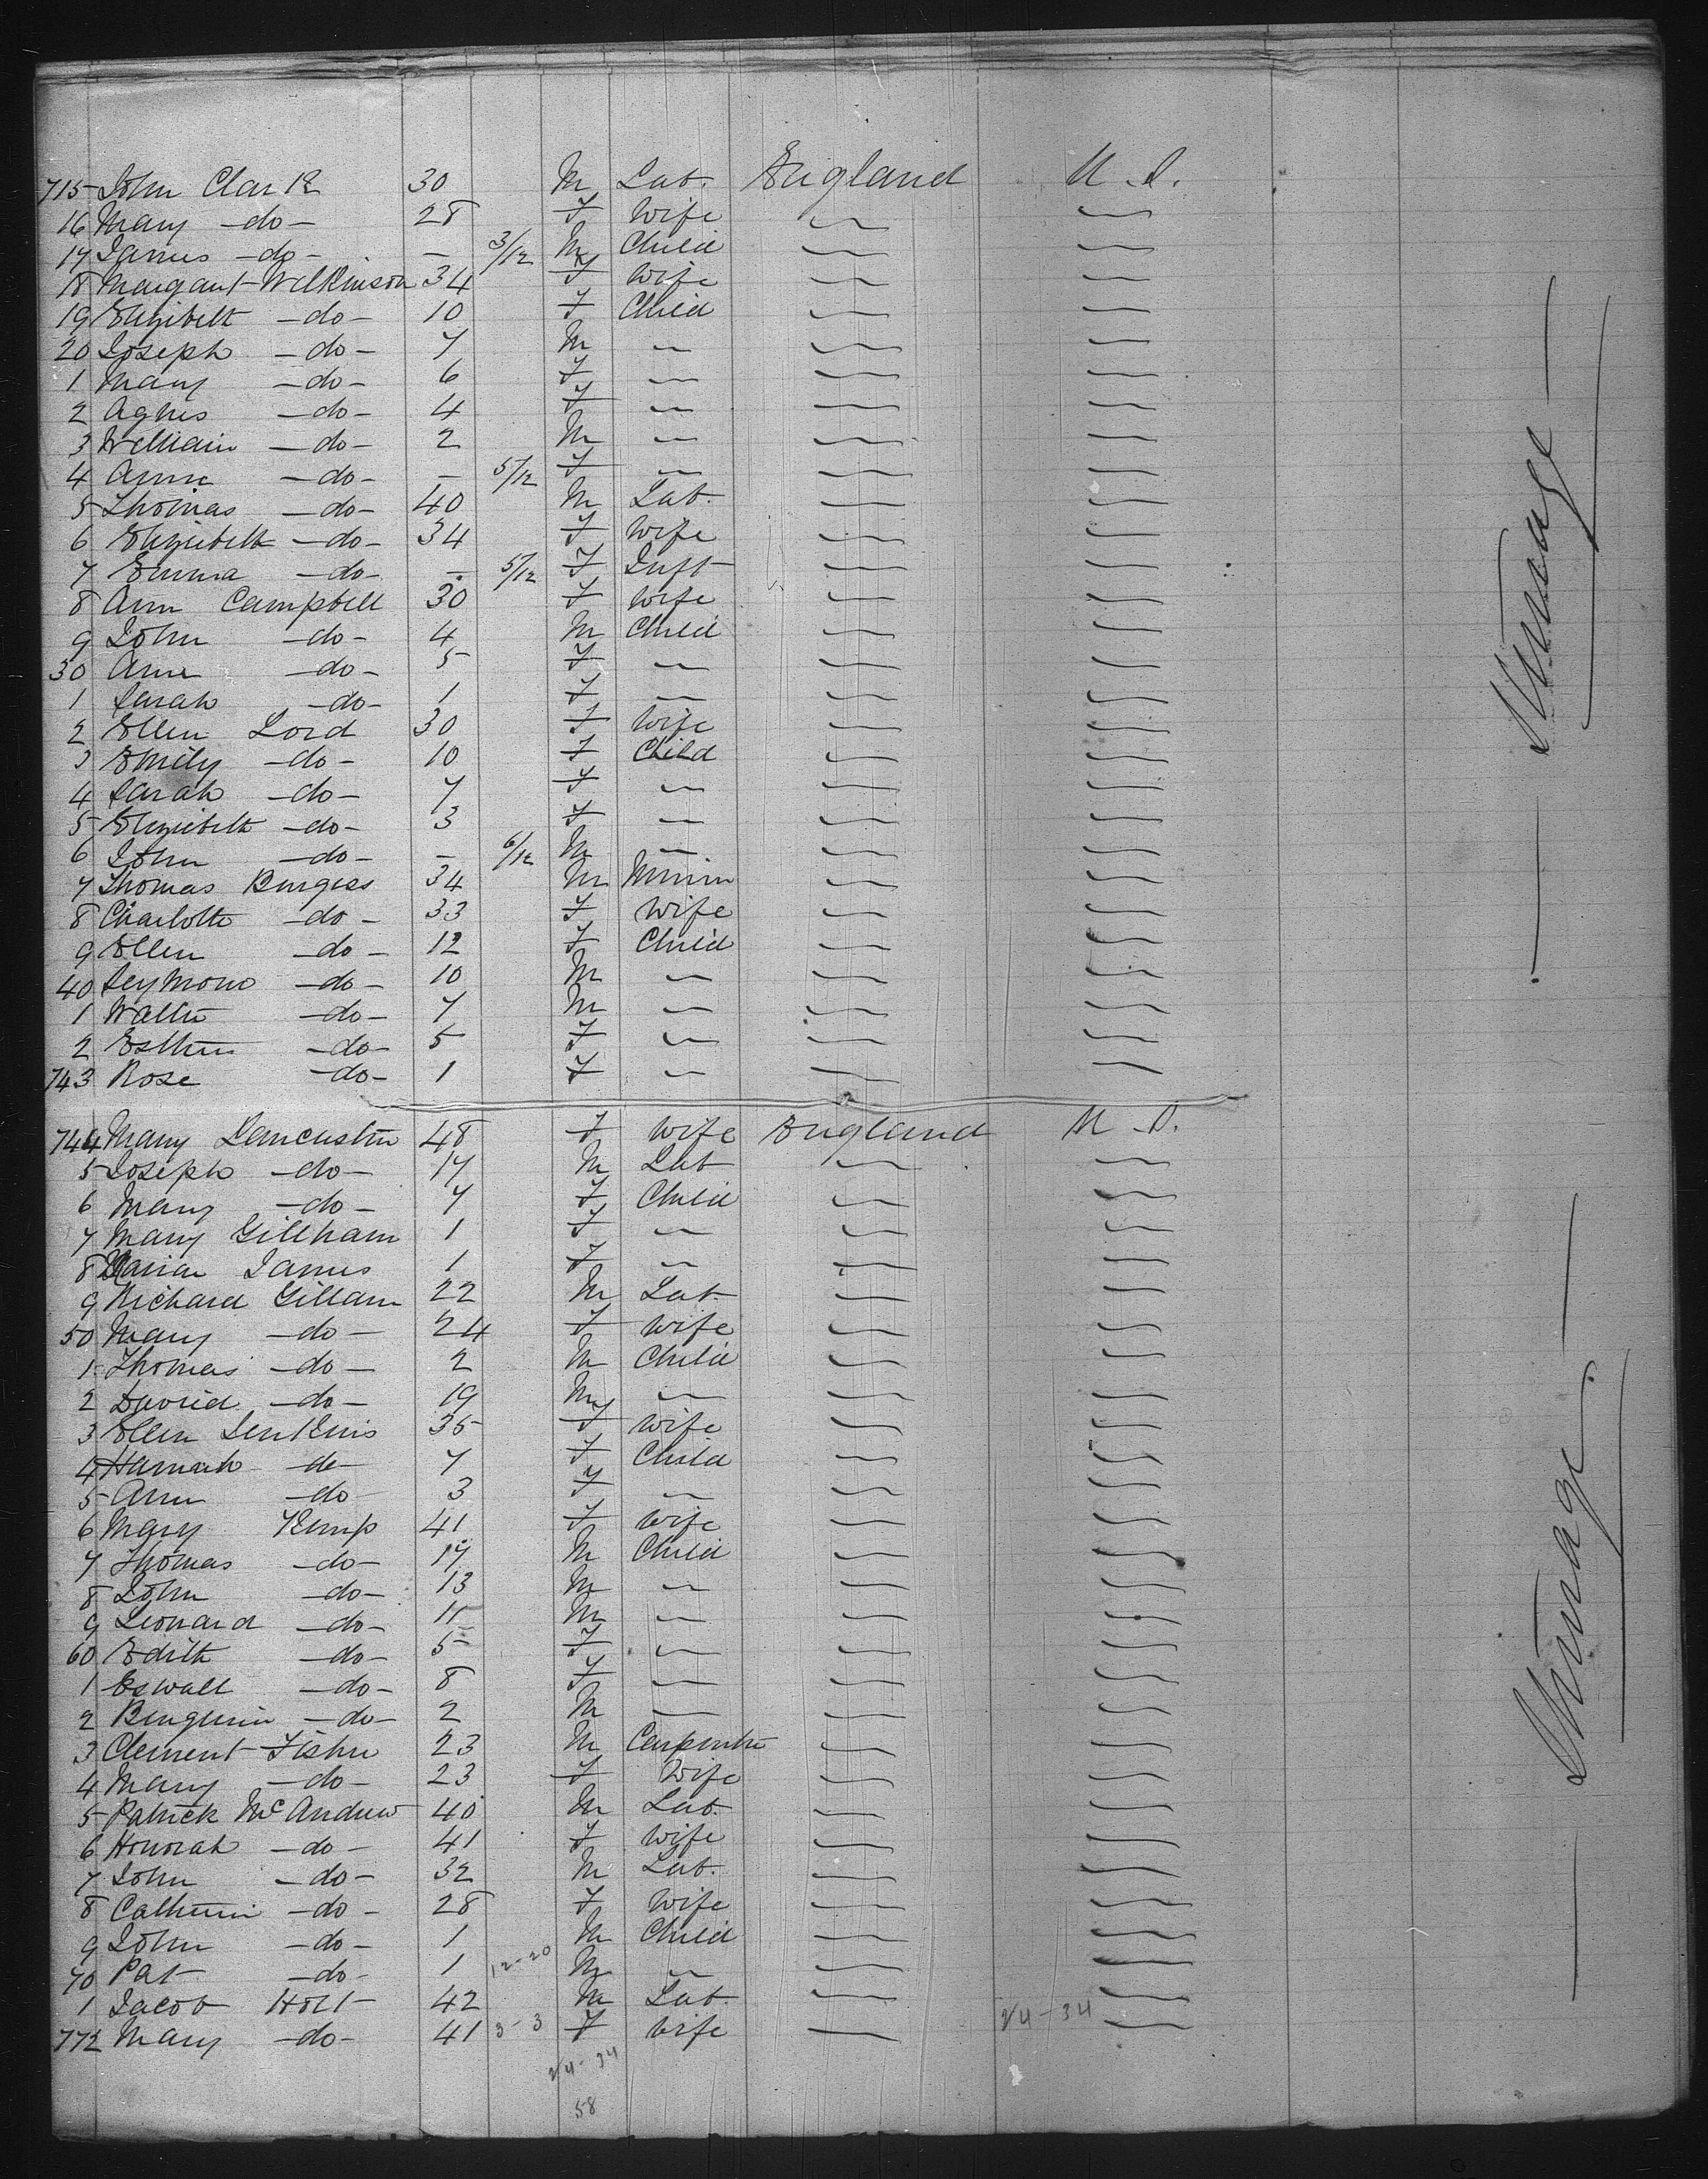 715 John Clark 30 M Lab. England U.S.
16 Mary -do- 28 F Wife
17 James -do- — 3/12 M Child
18 Margaret Wilkinson 34 F Wife
19 Elizibeth -do- 10 F Child
20 Joseph -do- 7 M
1 Mary -do- 6 F
2 Agnes -do- 4 F
3 William -do- 2 M
4 Anne -do- — 5/12 F
5 Thomas -do- 40 M Lab.
6 Elizibeth -do- 34 F Wife
7 Emma -do- — 5/12 F Inft
8 Ann Campbell 30 F Wife
9 John -do- 4 M Child
30 Ann -do- 5 F
1 Sarah -do- 1 F
2 Ellen Lord 30 F Wife
3 Emily -do- 10 F Child
4 Sarah -do- 7 F
5 Elizibeth -do- 3 F
6 John -do- — 6/12 M
7 Thomas Burgess 34 M
8 Charlotte -do- 33 F Wife
9 Ellen -do- 12 F Child
40 -do- 10 M
1 Walter -do- 7 M
2 Esther -do- 5 F
743 Rose -do- 1 F
— Steerage —
744 Mary Lancaster 48 F Wife England U.S.
5 Joseph -do- 17 M Lab
6 Mary -do- 7 F Child
7 Mary Gillham 1 F
8 James 1 F
9 Richard Gillam 22 M Lab.
50 Mary -do- 24 F Wife
1 Thomas -do- 2 M Child
2 David -do- 19 M
3 Ellen Jenkins 35 F Wife
4 Hannah -do- 7 F Child
5 Ann -do- 3 F
6 Mary Kemp 41 F Wife
7 Thomas -do- 17 M Child
8 John -do- 13 M
9 Leonard -do- 11 M
60 Edith -do- 5 F
1 Eswall -do- 8 F
2 -do- 2 M
3 Clement Fisher 23 M Carpenter
4 Mary -do- 23 F Wife
5 Patrick McAndrew 40 M Lab.
6 Honorah -do- 41 F Wife
7 John -do- 32 M Lab.
8 Catherine -do- 28 F Wife
9 John -do- 1 M Child
70 Pat -do- 1 12-20 M
1 Jacob Holt 42 M Lab.
772 Mary -do- 41 3-3 F Wife 24-34
24-34
58
— Steerage —